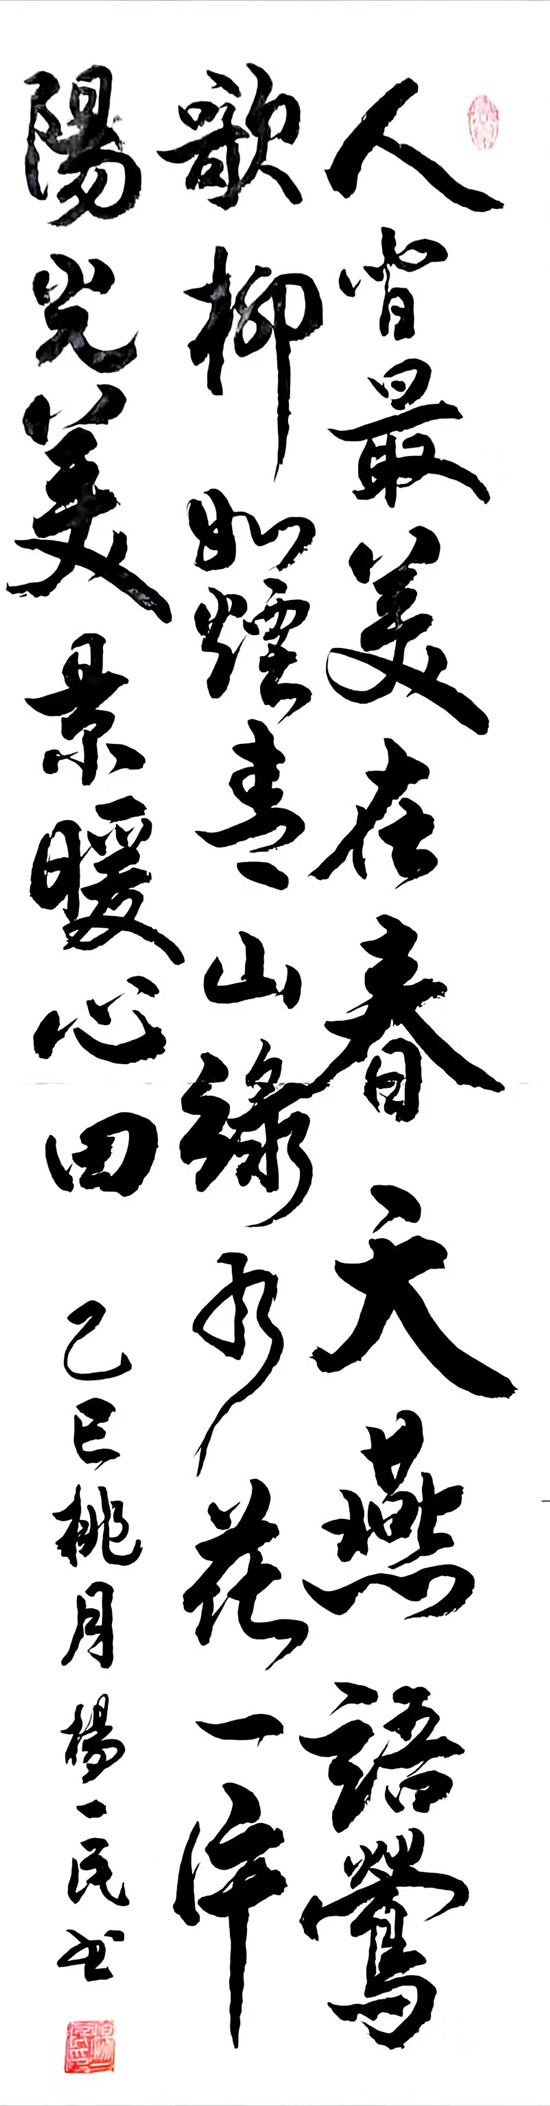 人間最美在春天燕語鶯
歌柳如煙青山綠水花一片
陽光美景暖心田
乙巳桃月楊一民书